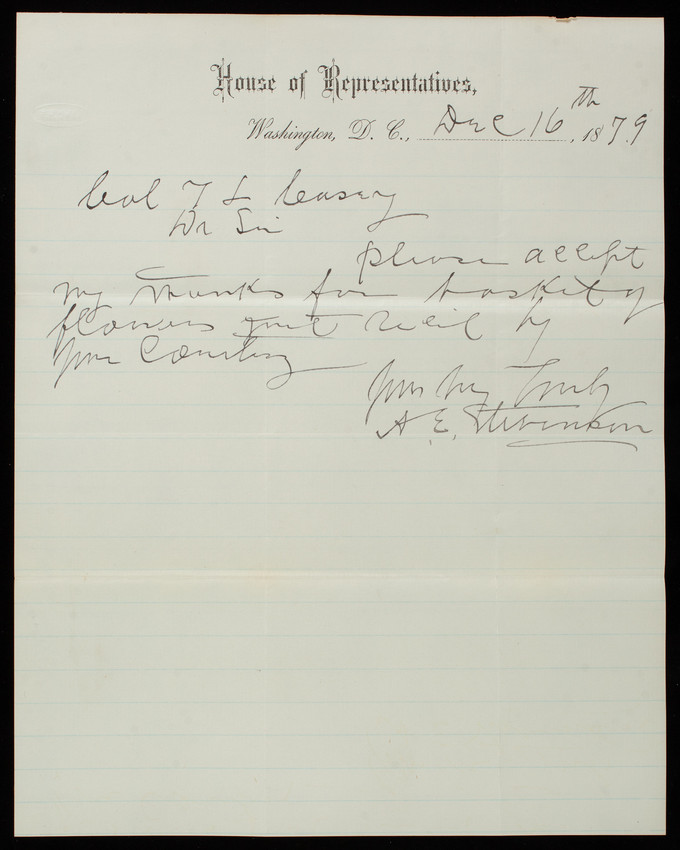 House of Representatives,
Washington, D. C., Dec 16th, 1879
Col T L Casey
Dr Sir
please accept
my thanks for basket of
flowers just recd by
your Courtesy
Yours very Truly
A. E. Stevenson